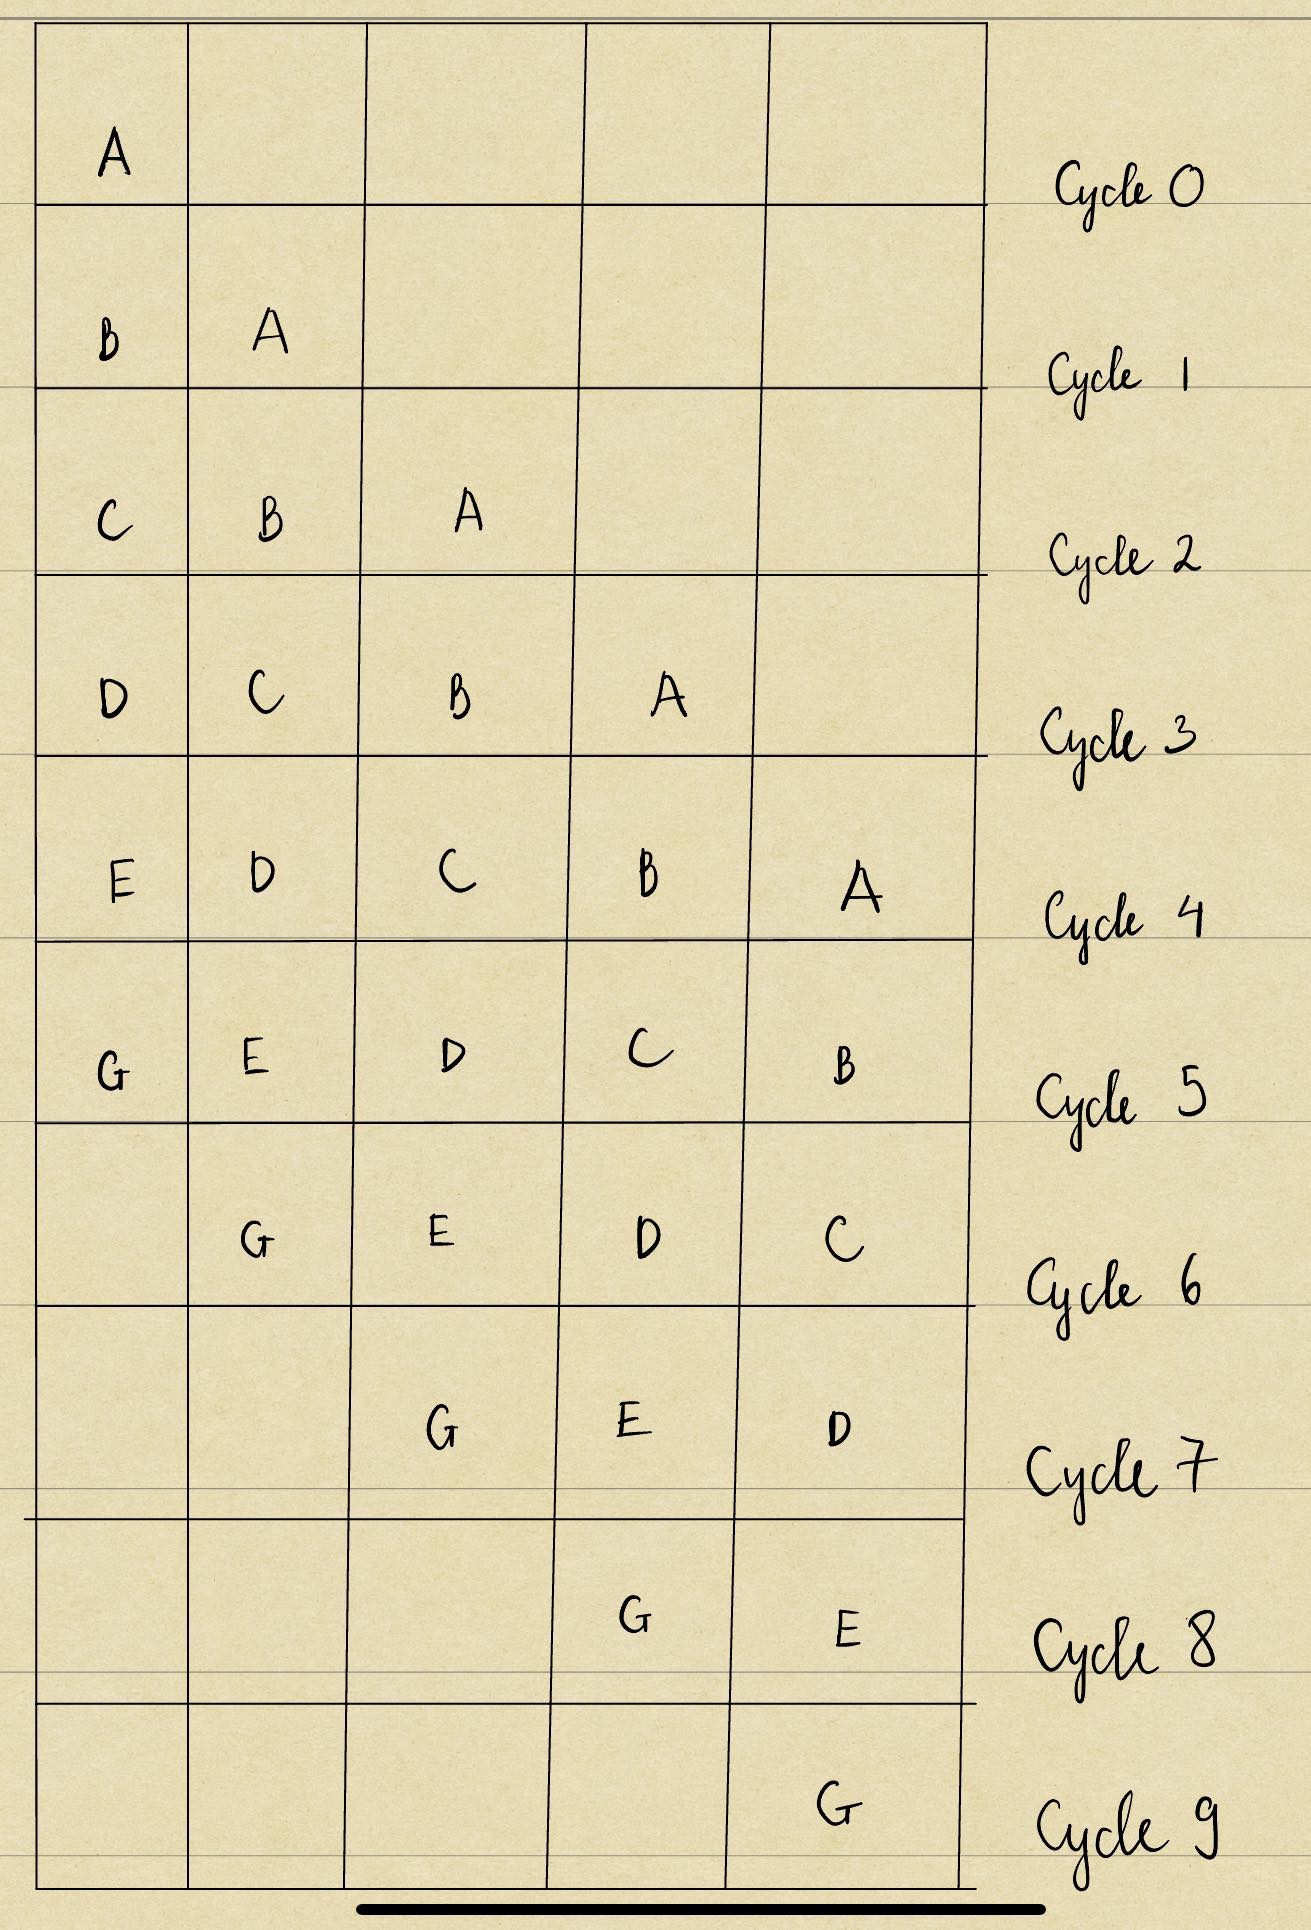 A Cycle 0
B A Cycle 1
C B A Cycle 2
D C B A Cycle 3
E D C B A Cycle 4
G E D C B Cycle 5
G E D C Cycle 6
G E D Cycle 7
G E Cycle 8
G Cycle 9